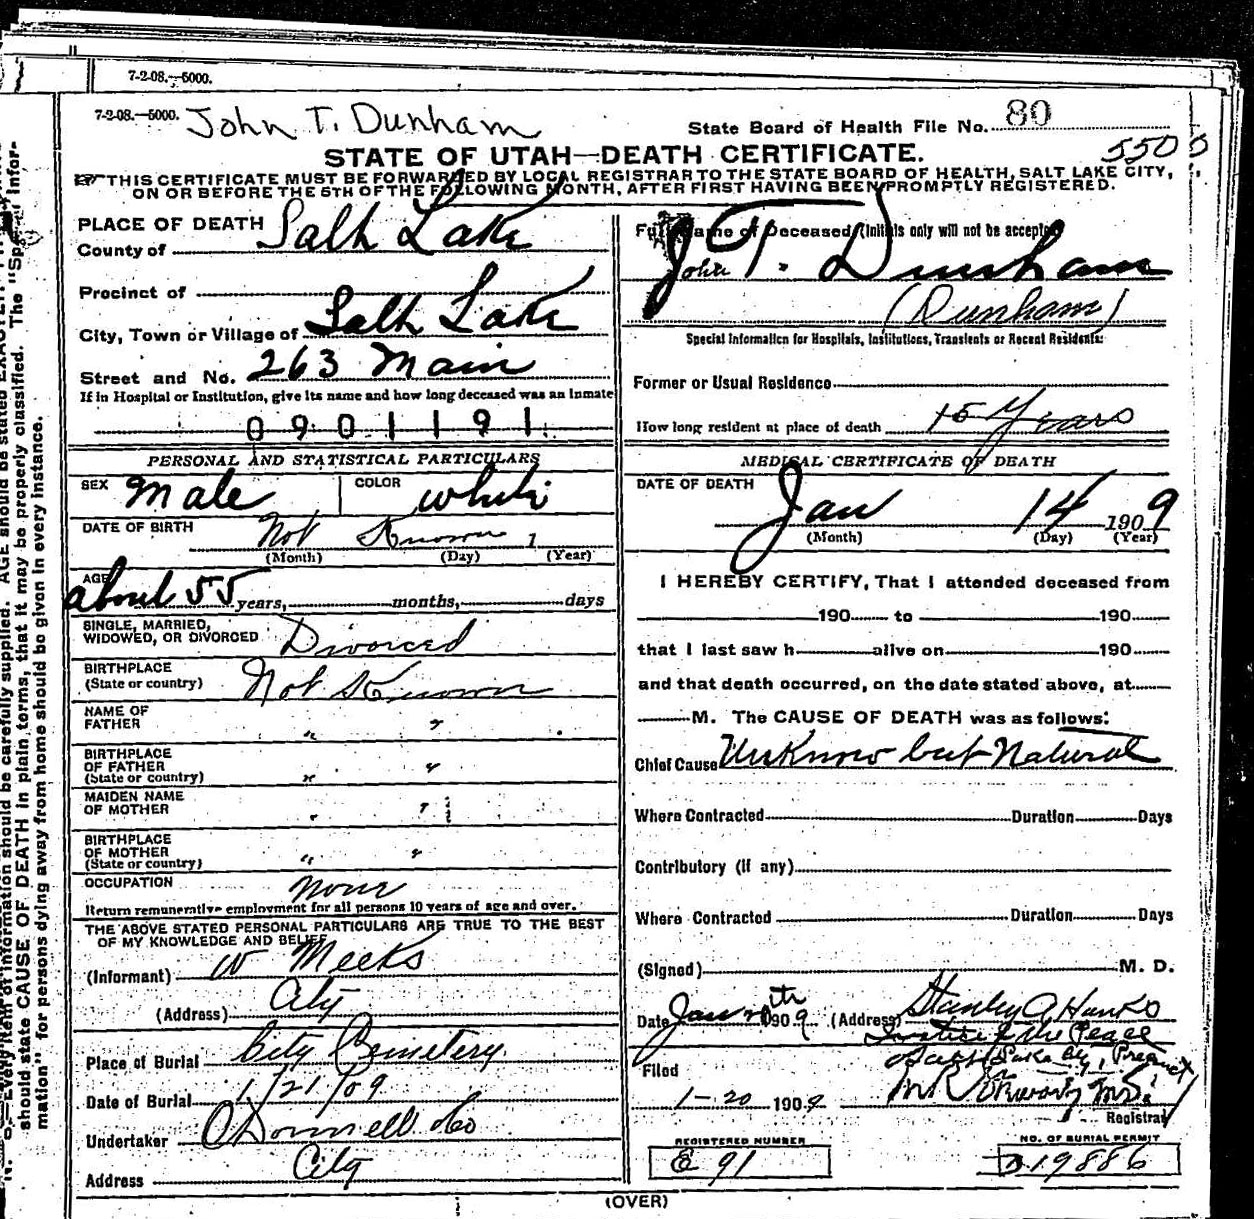 7-2-08.—5000.
7-2-08.—5000. John T. Dunham
State Board of Health File No. 80
5505
STATE OF UTAH—DEATH CERTIFICATE.
THIS CERTIFICATE MUST BE FORWARDED BY LOCAL REGISTRAR TO THE STATE BOARD OF HEALTH, SALT LAKE CITY,
ON OR BEFORE THE 5TH OF THE FOLLOWING MONTH, AFTER FIRST HAVING BEEN PROMPTLY REGISTERED.
PLACE OF DEATH
County of Salt Lake
Precinct of
City, Town or Village of Salt Lake
Street and No. 263 Main
If in Hospital or Institution, give its name and how long deceased was an inmate
0901191
PERSONAL AND STATISTICAL PARTICULARS
SEX Male COLOR White
DATE OF BIRTH Not Known 1
(Month) (Day) (Year)
AGE about 55 years, months, days
SINGLE, MARRIED,
WIDOWED, OR DIVORCED Divorced
BIRTHPLACE
(State or country) Not Known
NAME OF
FATHER " "
BIRTHPLACE
OF FATHER
(State or country) " "
MAIDEN NAME
OF MOTHER " "
BIRTHPLACE
OF MOTHER
(State or country) " "
OCCUPATION None
Return remunerative employment for all persons 10 years of age and over.
THE ABOVE STATED PERSONAL PARTICULARS ARE TRUE TO THE BEST
OF MY KNOWLEDGE AND BELIEF
(Informant) W Meeks
(Address) City
Place of Burial City Cemetery
Date of Burial 1/21/09
Undertaker O'Donnell & Co
Address City
Full Name of Deceased (Initials only will not be accepted)
John T. Dunham
(Dunham)
Special Information for Hospitals, Institutions, Transients or Recent Residents:
Former or Usual Residence
How long resident at place of death 15 Years
MEDICAL CERTIFICATE OF DEATH
DATE OF DEATH
Jan 14 1909
(Month) (Day) (Year)
I HEREBY CERTIFY, That I attended deceased from
190 to 190
that I last saw h alive on 190
and that death occurred, on the date stated above, at
M. The CAUSE OF DEATH was as follows:
Chief Cause Unknow but Natural
Where Contracted Duration Days
Contributory (if any)
Where Contracted Duration Days
(Signed) M. D.
Date Jan 20th 1909 (Address) Stanley A Hanks
Justice of the Peace
Salt Lake City, Precinct
Filed
1-20 1909
Registrar
REGISTERED NUMBER
E 91
NO. OF BURIAL PERMIT
D19886
(OVER)
should state CAUSE OF DEATH in plain terms, that it may be properly classified. The "Special Infor-
mation" for persons dying away from home should be given in every instance.